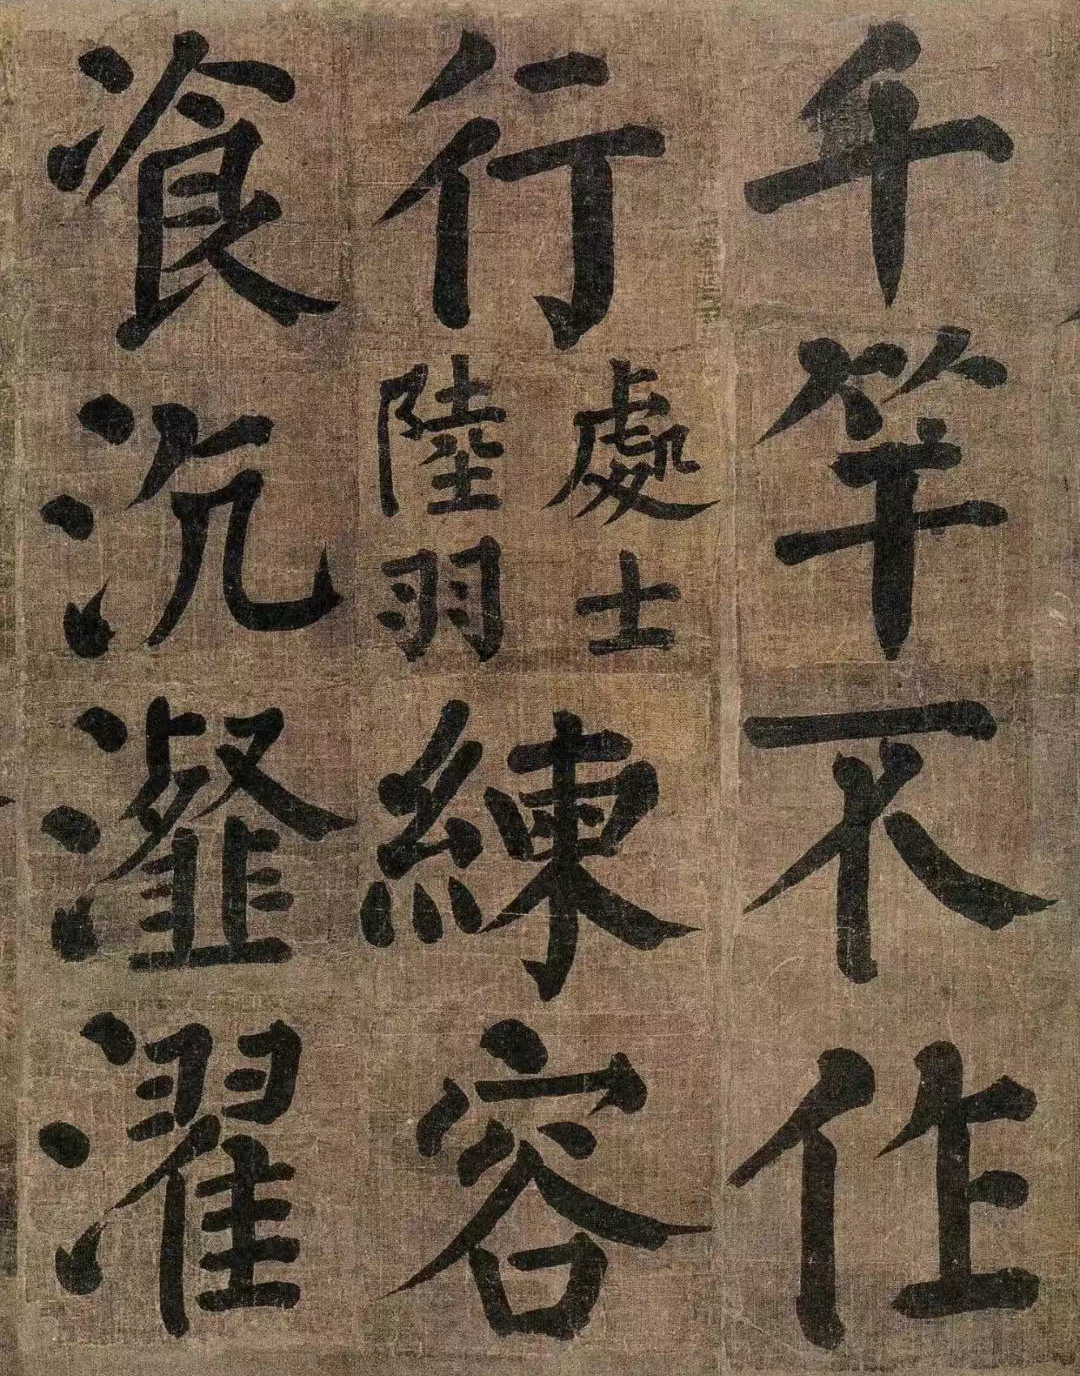 千竿不作
行
處士
陸羽
練容
飡沆瀣濯